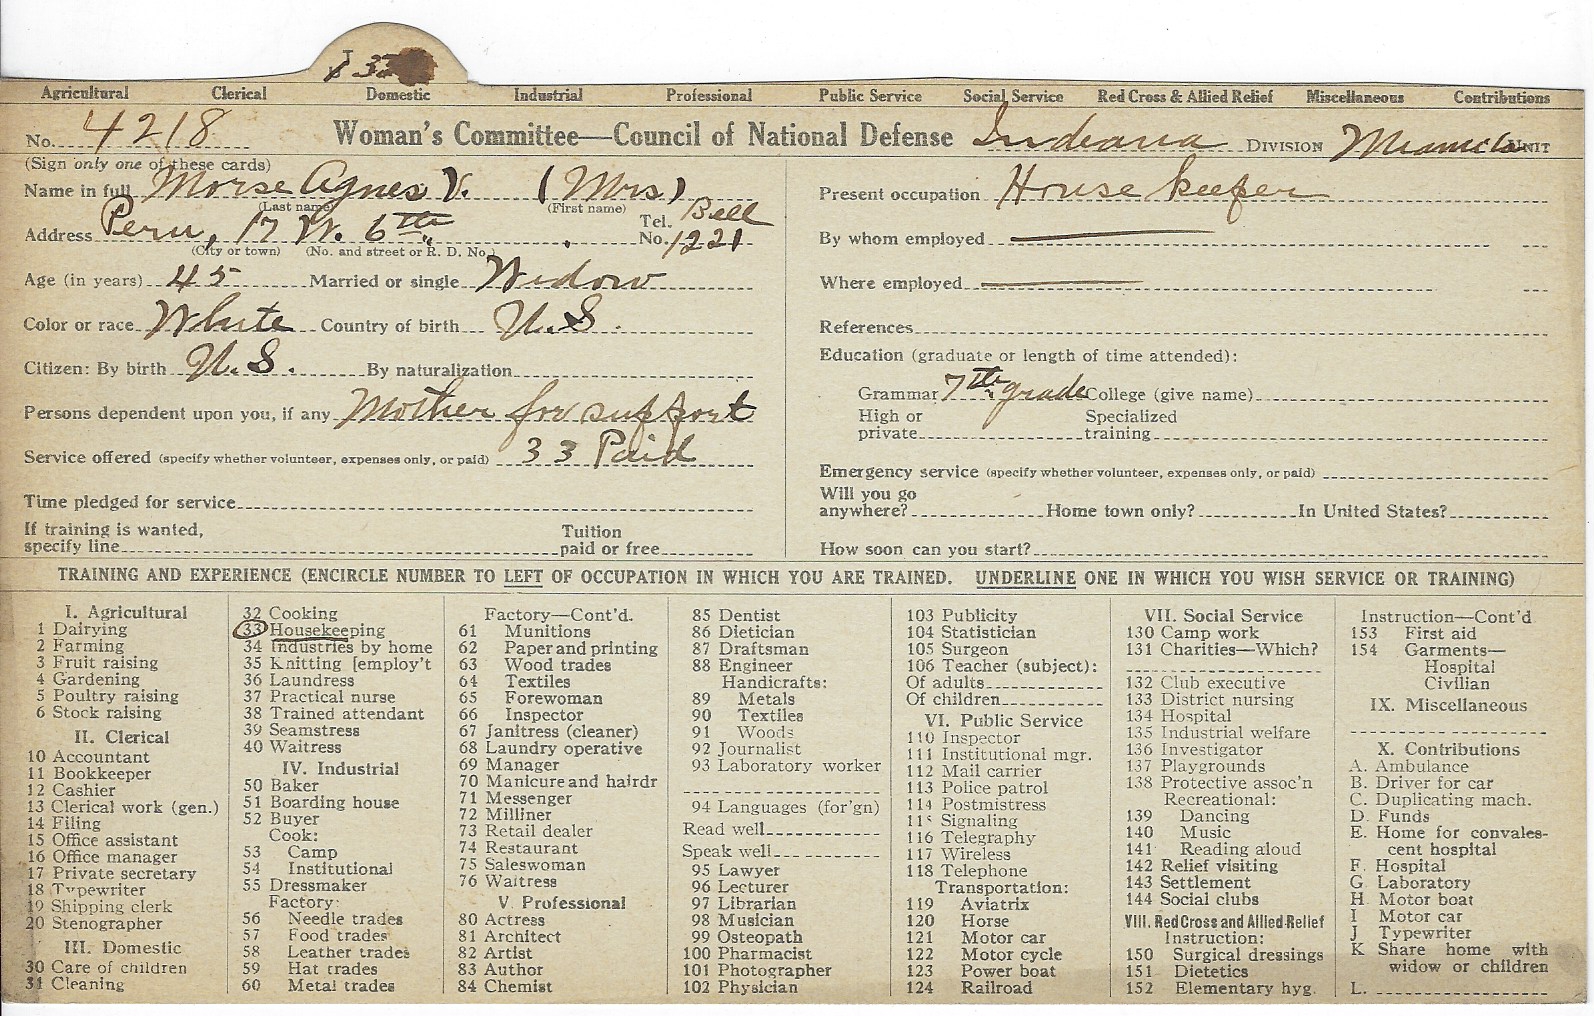 33
Agricultural Clerical Domestic Industrial Professional Public Service Social Service Red Cross & Allied Relief Miscellaneous Contributions
No. 4218 Woman's Committee—Council of National Defense Indiana DIVISION Miami Co UNIT
(Sign only one of these cards)
Name in full Morse Agnes V. (Mrs)
(Last name) (First name)
Address Peru, 17 W. 6th Tel. No. Bell 1221
(City or town) (No. and street or R. D. No.)
Age (in years) 45 Married or single Widow
Color or race White Country of birth U.S.
Citizen: By birth U.S. By naturalization
Persons dependent upon you, if any Mother for support
Service offered (specify whether volunteer, expenses only, or paid) 33 Paid
Time pledged for service
If training is wanted,
specify line Tuition paid or free
Present occupation House keeper
By whom employed
Where employed
References
Education (graduate or length of time attended):
Grammar 7th grade College (give name)
High or private Specialized training
Emergency service (specify whether volunteer, expenses only, or paid)
Will you go
anywhere? Home town only? In United States?
How soon can you start?
TRAINING AND EXPERIENCE (ENCIRCLE NUMBER TO LEFT OF OCCUPATION IN WHICH YOU ARE TRAINED. UNDERLINE ONE IN WHICH YOU WISH SERVICE OR TRAINING)
I. Agricultural
1 Dairying
2 Farming
3 Fruit raising
4 Gardening
5 Poultry raising
6 Stock raising
II. Clerical
10 Accountant
11 Bookkeeper
12 Cashier
13 Clerical work (gen.)
14 Filing
15 Office assistant
16 Office manager
17 Private secretary
18 Typewriter
19 Shipping clerk
20 Stenographer
III. Domestic
30 Care of children
31 Cleaning
32 Cooking
33 Housekeeping
34 Industries by home
35 Knitting [employ't
36 Laundress
37 Practical nurse
38 Trained attendant
39 Seamstress
40 Waitress
IV. Industrial
50 Baker
51 Boarding house
52 Buyer
Cook:
53 Camp
54 Institutional
55 Dressmaker
Factory:
56 Needle trades
57 Food trades
58 Leather trades
59 Hat trades
60 Metal trades
Factory—Cont'd.
61 Munitions
62 Paper and printing
63 Wood trades
64 Textiles
65 Forewoman
66 Inspector
67 Janitress (cleaner)
68 Laundry operative
69 Manager
70 Manicure and hairdr
71 Messenger
72 Milliner
73 Retail dealer
74 Restaurant
75 Saleswoman
76 Waitress
V. Professional
80 Actress
81 Architect
82 Artist
83 Author
84 Chemist
85 Dentist
86 Dietician
87 Draftsman
88 Engineer
Handicrafts:
89 Metals
90 Textiles
91 Woods
92 Journalist
93 Laboratory worker
94 Languages (for'gn)
Read well
Speak well
95 Lawyer
96 Lecturer
97 Librarian
98 Musician
99 Osteopath
100 Pharmacist
101 Photographer
102 Physician
103 Publicity
104 Statistician
105 Surgeon
106 Teacher (subject):
Of adults
Of children
VI. Public Service
110 Inspector
111 Institutional mgr.
112 Mail carrier
113 Police patrol
114 Postmistress
115 Signaling
116 Telegraphy
117 Wireless
118 Telephone
Transportation:
119 Aviatrix
120 Horse
121 Motor car
122 Motor cycle
123 Power boat
124 Railroad
VII. Social Service
130 Camp work
131 Charities—Which?
132 Club executive
133 District nursing
134 Hospital
135 Industrial welfare
136 Investigator
137 Playgrounds
138 Protective assoc'n
Recreational:
139 Dancing
140 Music
141 Reading aloud
142 Relief visiting
143 Settlement
144 Social clubs
VIII. Red Cross and Allied Relief
Instruction:
150 Surgical dressings
151 Dietetics
152 Elementary hyg.
Instruction—Cont'd
153 First aid
154 Garments—
Hospital
Civilian
IX. Miscellaneous
X. Contributions
A. Ambulance
B. Driver for car
C. Duplicating mach.
D. Funds
E. Home for convales-
cent hospital
F. Hospital
G. Laboratory
H. Motor boat
I Motor car
J Typewriter
K Share home with
widow or children
L.